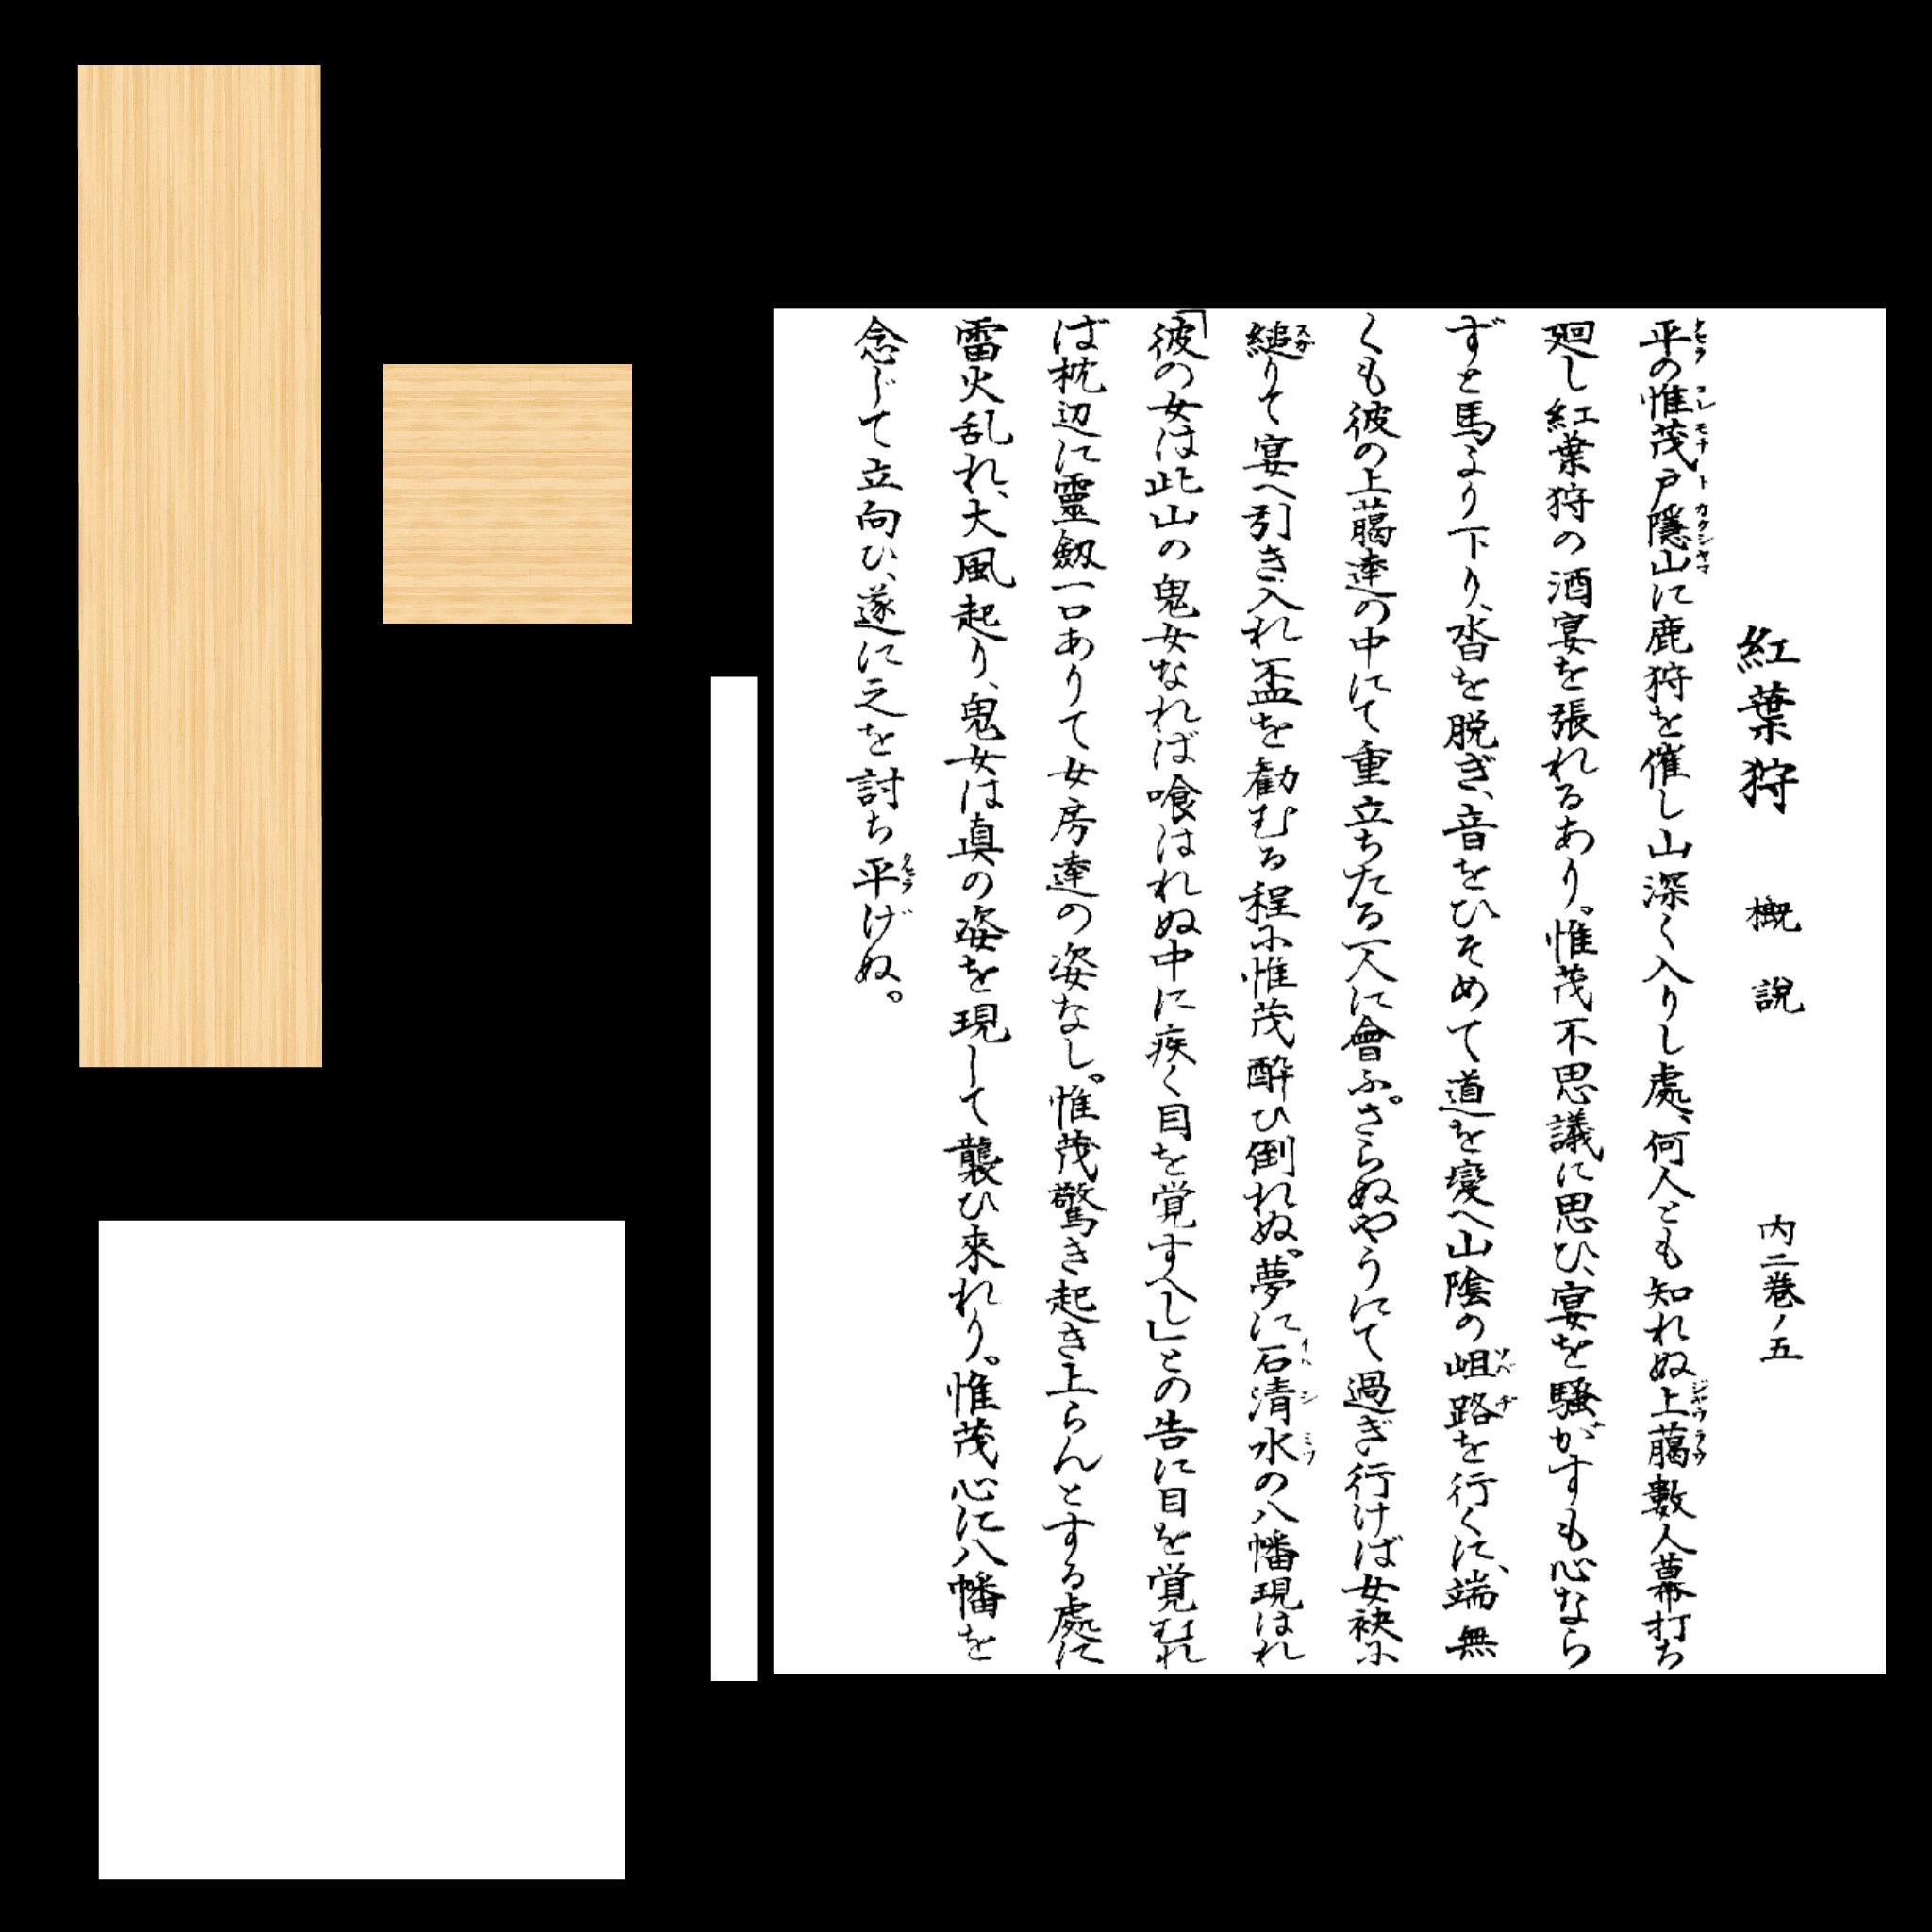 紅葉狩　概説　内二巻ノ五
平の惟茂戸隠山に鹿狩を催し山深く入りし處、何人とも知れぬ上臈數人幕打ち
廻し紅葉狩の酒宴を張れるあり。惟茂不思議に思ひ、宴を騒がすも心なら
ずと馬より下り、沓を脱ぎ、音をひそめて道を變へ山陰の岨路を行くに、端無
くも彼の上臈達の中にて重立ちたる一人に會ふ。さらぬやうにて過ぎ行けば女袂に
縋りて宴へ引き入れ盃を勸むる程に惟茂酔ひ倒れぬ。夢に石清水の八幡現はれ
「彼の女は此山の鬼女なれば喰はれぬ中に疾く目を覚すへし」との告に目を覚むれ
ば枕辺に靈劔一口ありて女房達の姿なし。惟茂驚き起き上らんとする處に
雷火乱れ、大風起り、鬼女は真の姿を現して襲ひ來れり。惟茂心に八幡を
念じて立向ひ、遂に之を討ち平げぬ。